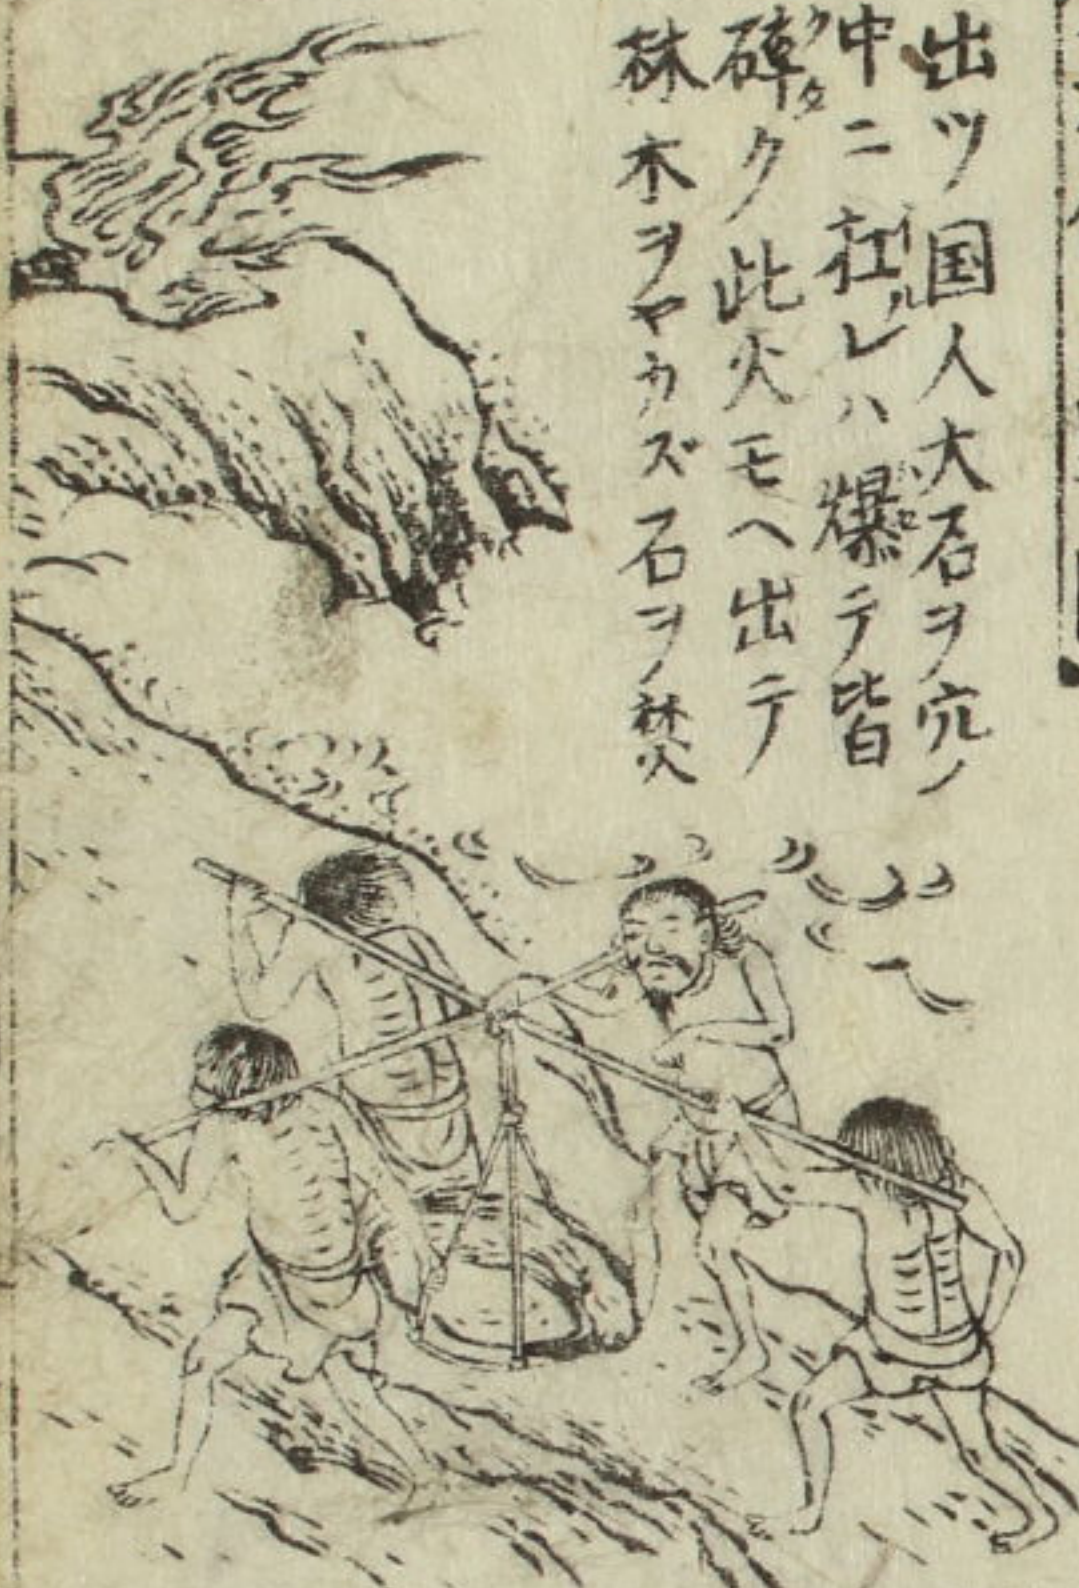 出ツ国人大石ヲ穴ノ
中ニ在レハ爆テ皆
碎ク此火モヘ出テ
林木ヲヤカズ石ヲ焚